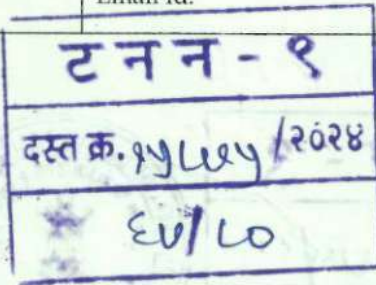 Email id:
ट न न - १
दस्त क्र. १५८७५ /२०२४
६७/८०